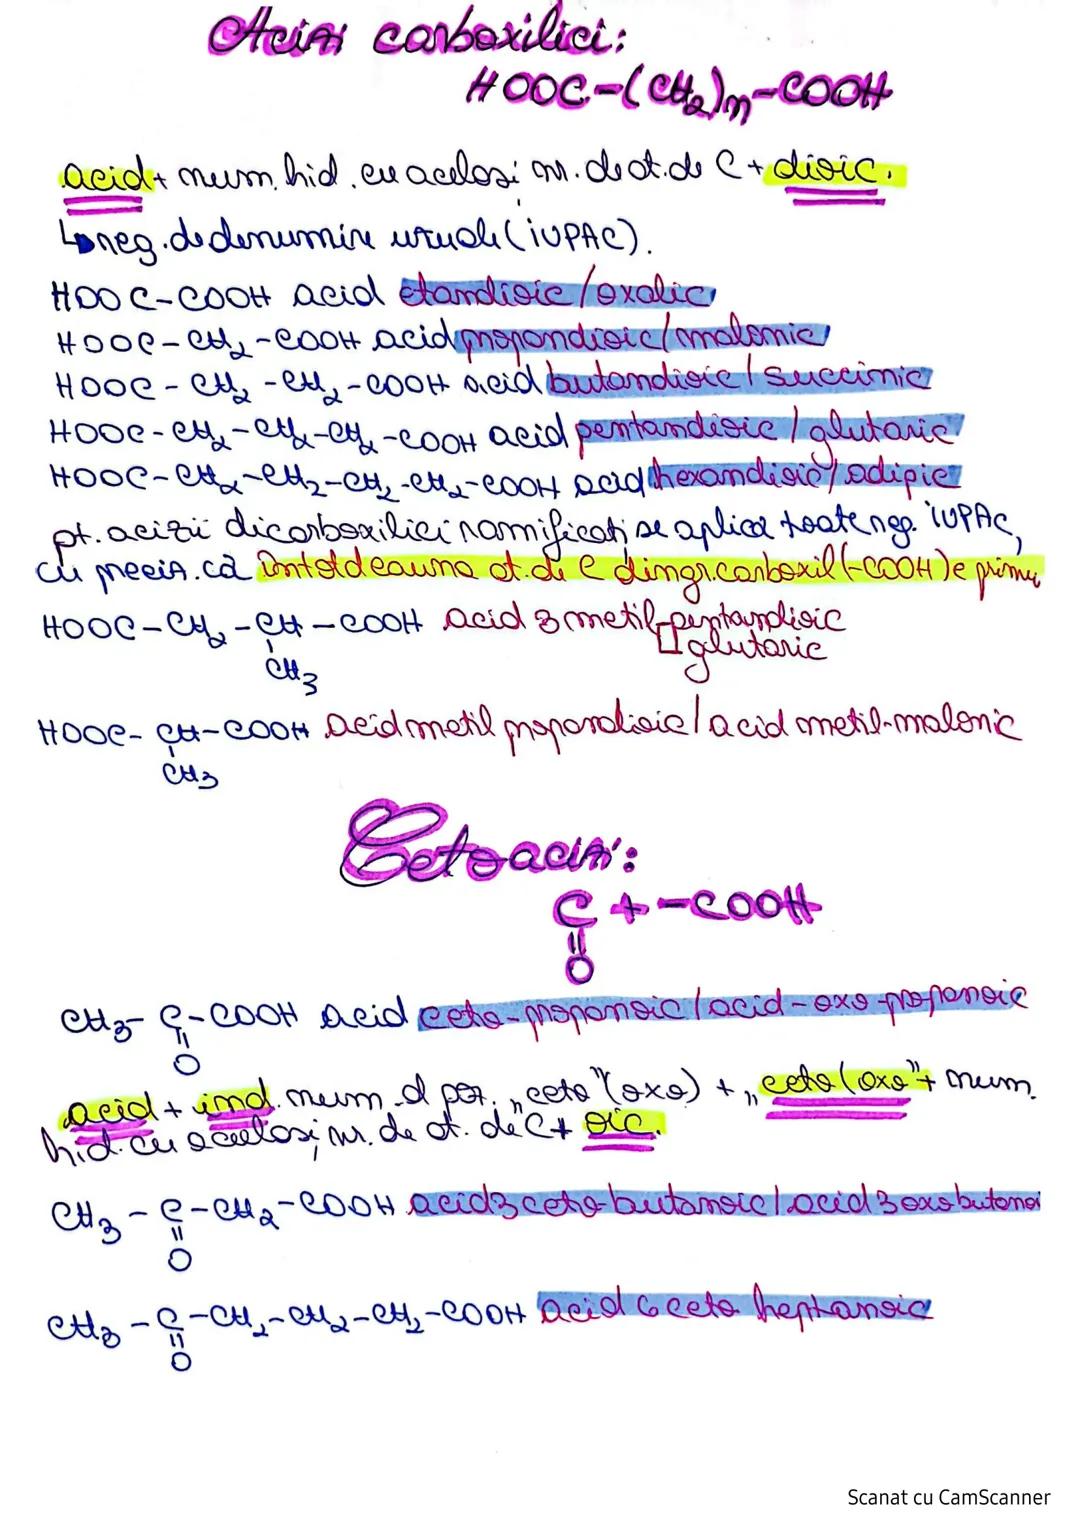 Acizi carboxilici:
HOOC-(CH2)n-COOH
acid + num. hid. cu același nr. de at. de C + dioic.
reg. de denumire uzuale (IUPAC).
HOOC-COOH acid etandioic/oxalic
HOOC-CH2-COOH acid propandioic/malonic
HOOC-CH2-CH2-COOH acid butandioic/succinic
HOOC-CH2-CH2-CH2-COOH acid pentandioic/glutaric
HOOC-CH2-CH2-CH2-CH2-COOH acid hexandioic/adipic
pt. acizii dicarboxilici ramificați se aplică toate reg. IUPAC,
cu preciz. că întotdeauna at. de C din gr. carboxil (-COOH) e primu
HOOC-CH2-CH-COOH acid 3 metil-pentandioic
glutaric
CH3
HOOC-CH-COOH acid metil propandioic/acid metil-malonic
CH3
Cetoacizi:
C + -COOH
O
CH3-C-COOH acid ceto-propanoic/acid-oxo-propanoic
O
acid + ind. num. d poz. "ceto"(oxo) + "ceto(oxo" + num.
hid. cu același nr. de at. de C + oic.
CH3-C-CH2-COOH acid 3 ceto-butanoic/acid 3 oxo butanoi
O
CH3-C-CH2-CH2-CH2-COOH acid 6 ceto heptanoic
O
Scanat cu CamScanner